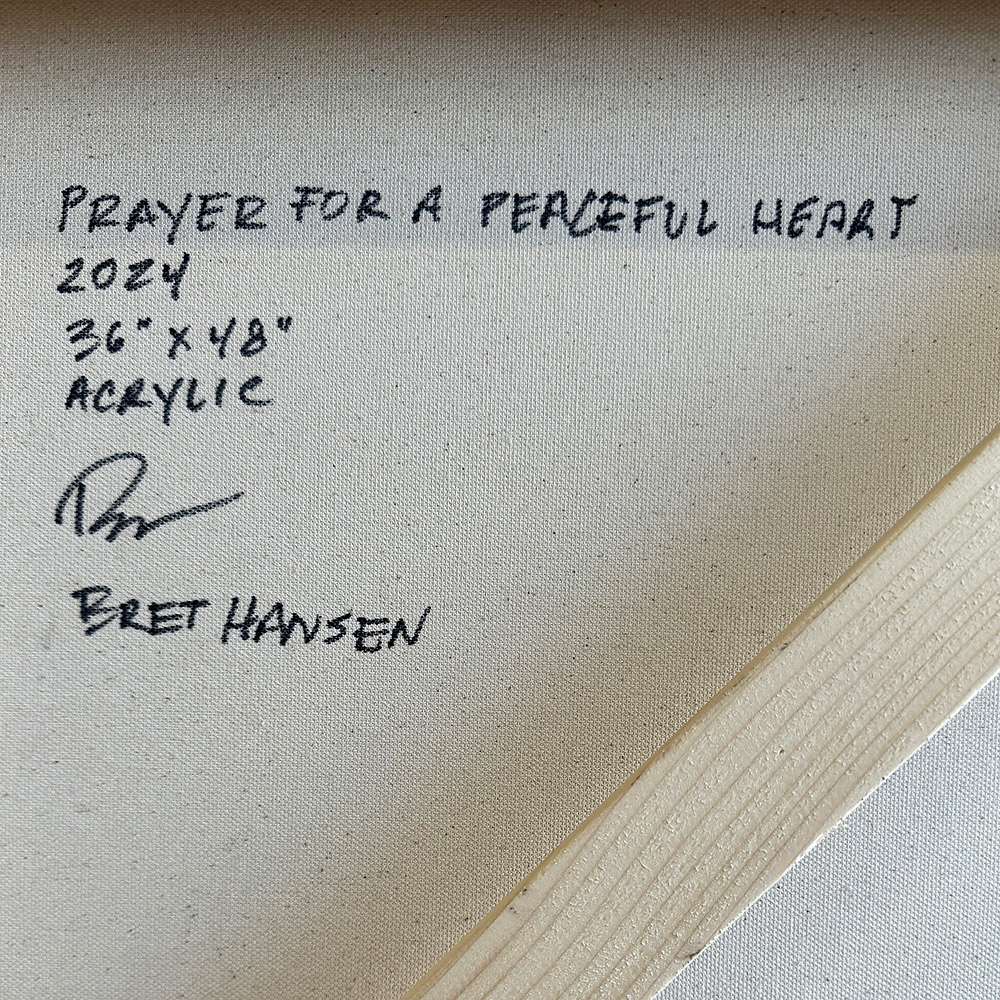 PRAYER FOR A PEACEFUL HEART
2024
36" X 48"
ACRYLIC
BRET HANSEN